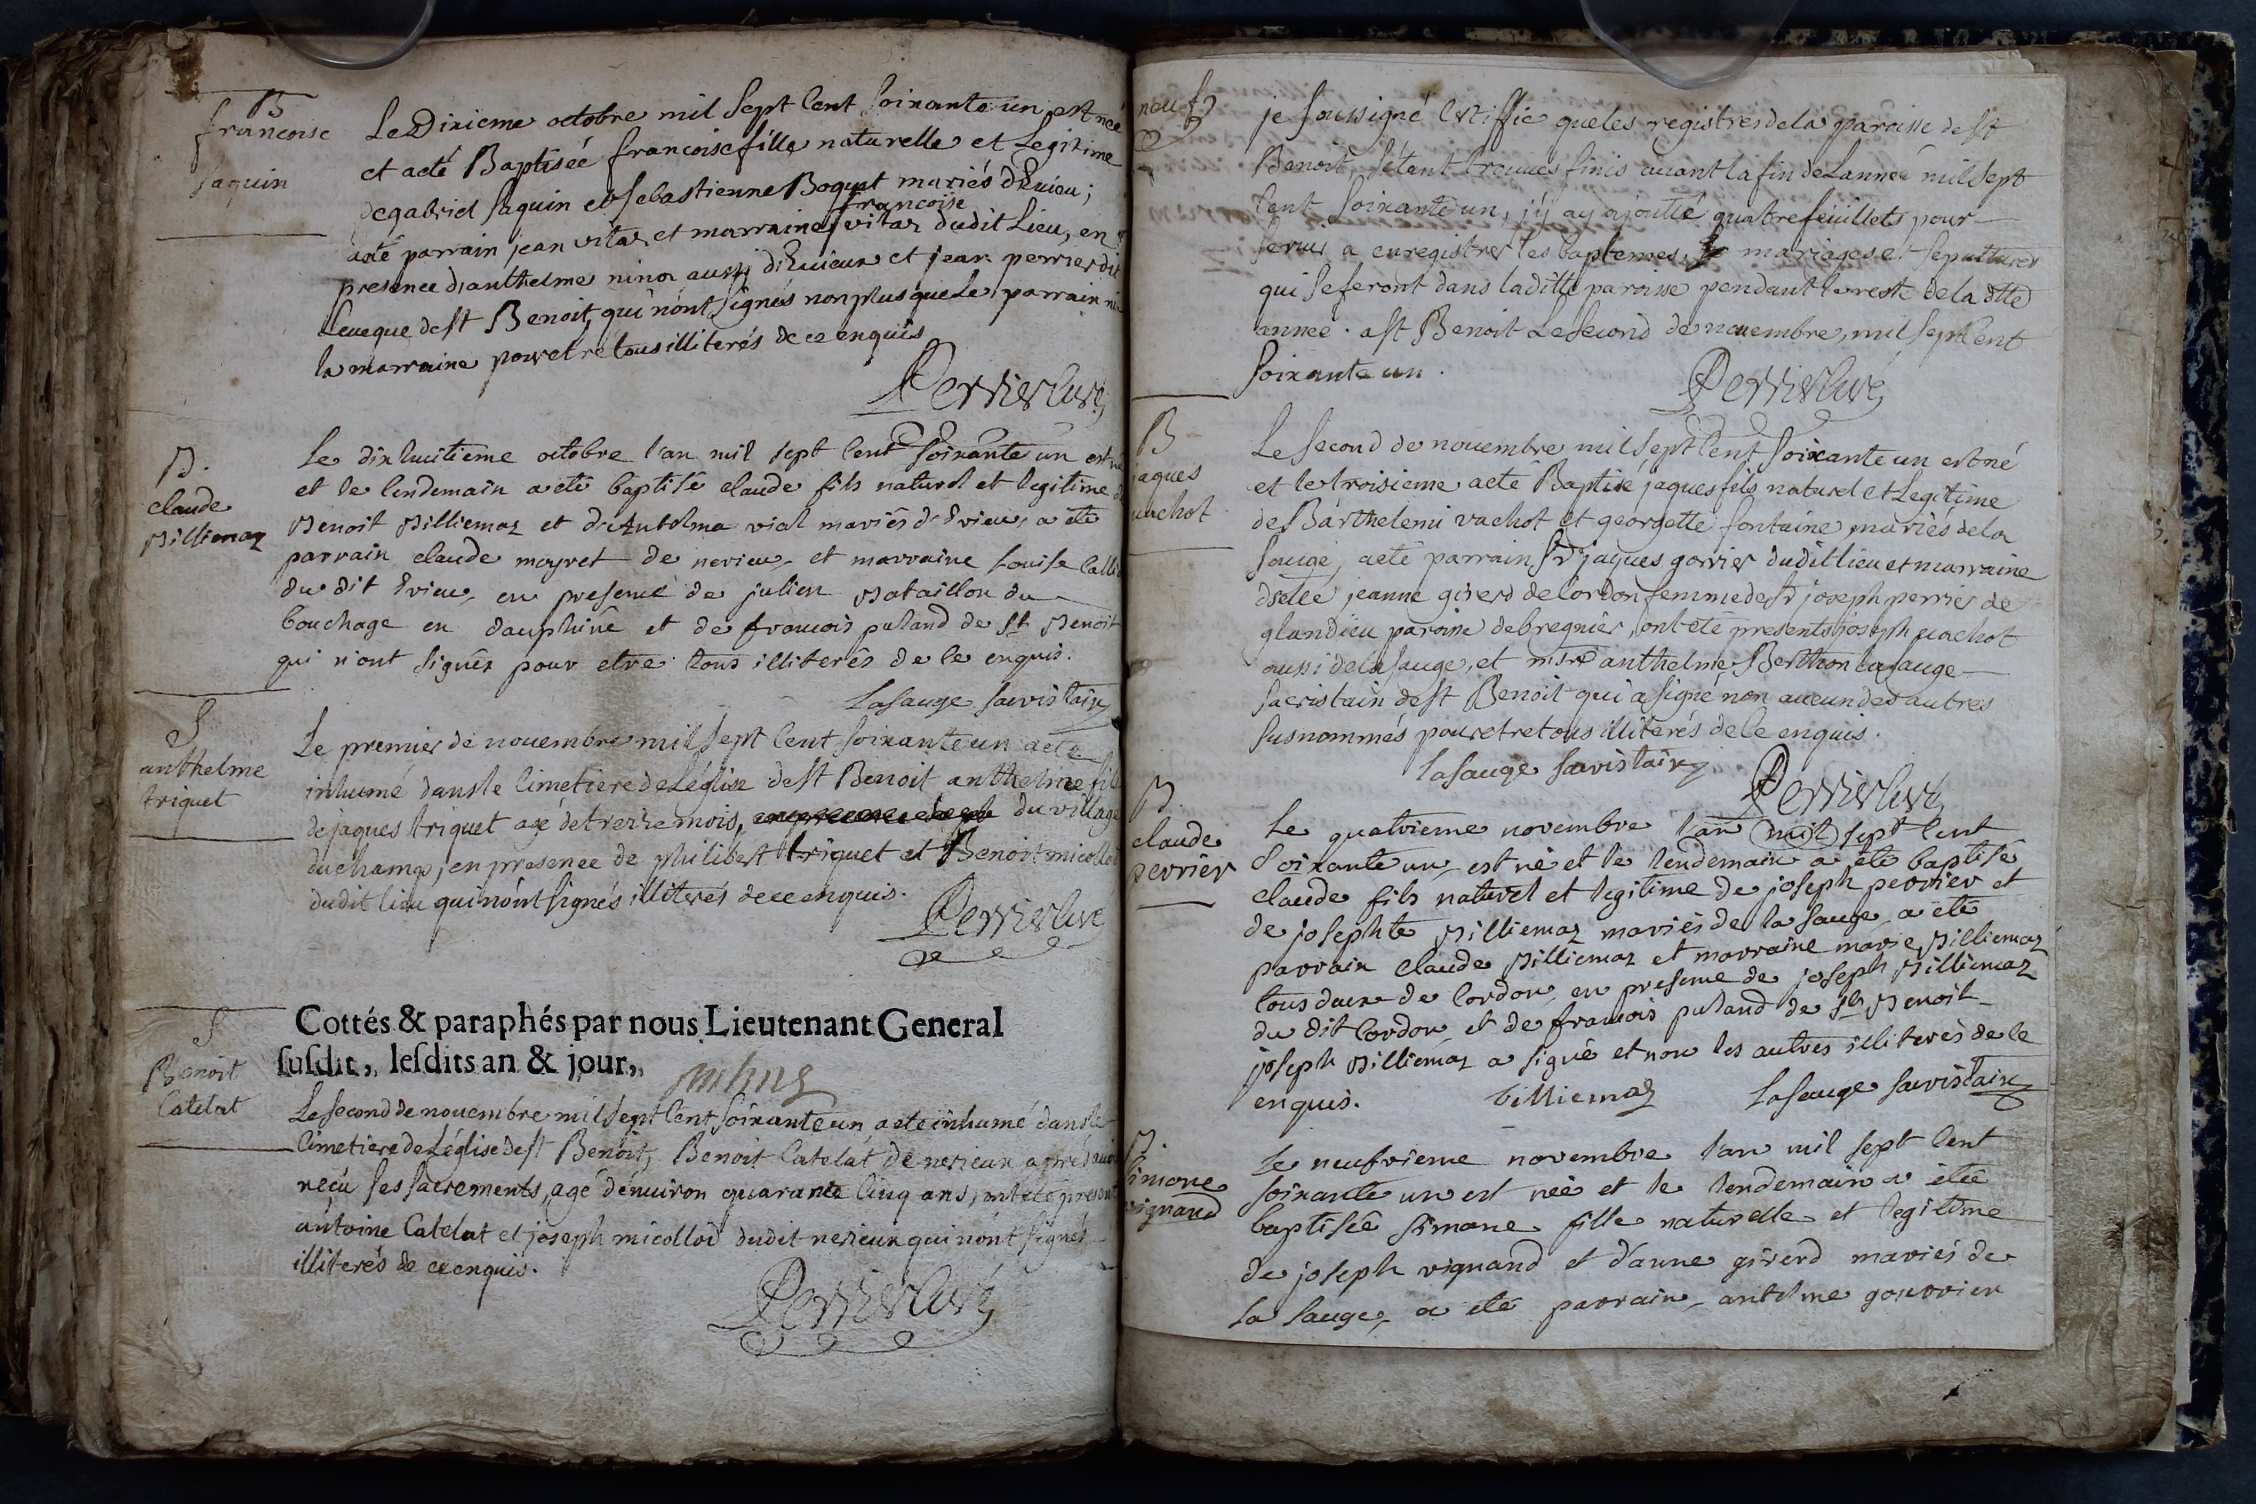 B
francoise
saquin
Le Dixieme octobre mil sept cent soixante un est née
et a eté Baptiseé francoise fille naturelle et Legitime
de gabriel saquin et sebastienne Boquet mariés d'Evieu;
a eté parrain jean vitaz et marraine francoise vitaz dudit Lieu, en
presence d'anthelme ninoz aussi d'Evieux et jean perrier dit
Leveque de st Benoit, qui nont signés non plus que le parrain ni
la marraine pour etre tous illiterés de ce enquis
Perrier curé
B.
claude
Billiemaz
Le dixhuitieme octobre l'an mil sept cent soixante un est né
et le lendemain a eté baptisé claude fils naturel et legitime de
Benoit Billiemaz et d'Antelma vial mariés d'Evieu, a eté
parrain claude moyret de nerieu, et marraine Louise
du dit Evieu, en presence de julien Bataillon du
bouchage en dauphiné et de francois puland de st Benoit
qui n'ont signés pour etre tous illiterés de ce enquis.
Lasauge sacristain
S
anthelme
triquet
Le premier de novembre mil sept cent soixante un a eté
inhumé dans le cimetiere de L'église de st Benoit anthelme fils
de jaques triquet agé de treize mois, du village
du champ, en presence de philibert triquet et Benoit micollod
dudit lieu qui nont signés illiterés de ce enquis.
Perrier curé
Cottés & paraphés par nous Lieutenant General
susdit, lesdits an & jour,
S
Benoit
Catelat
Le second de novembre mil sept cent soixante un a eté inhumé dans le
cimetiere de L'église de st Benoit, Benoit Catelat de nerieux après avoir
reçu ses sacrements, agé d'environ quarante cinq ans, ont eté presents
antoine Catelat et joseph micollod dudit nerieux qui nont signés
illiterés de ce enquis.
Perrier curé
neuf
je soussigné certiffie que les registres de la paroisse de st
Benoit s'étant trouvés finis avant la fin de L'année mil sept
cent soixante un, j'y ay ajouté quatre feuillets pour
servir a enregistrer les baptemes, mariages et sepultures
qui se feront dans la ditte paroisse pendant le reste de la dtte
année. a st Benoit Le second de novembre, mil sept cent
soixante un.
Perrier curé
B
jaques
vachot
Le second de novembre mil sept cent soixante un est né
et le troisieme a eté Baptisé jaques fils naturel et Legitime
de Barthelemi vachot et georgette fontaine mariés de la
sauge, a eté parrain sr jaques gorrier dudit lieu et marraine
dselle jeanne girerd de cordon femme de sr joseph perrier de
glandieu paroisse de bregnier, ont eté presents joseph vachot
aussi de la sauge, et msre anthelme Berthon lasauge
sacristain de st Benoit qui a signé non aucun des autres
susnommés pour etre tous illiterés de ce enquis.
lasauge sacristain
Perrier curé
B.
claude
perrier
Le quatrieme novembre l'an mil sept cent
soixante un est né et le lendemain a eté baptisé
claude fils naturel et legitime de joseph perrier et
de josephte Billiemaz mariés de la sauge, a eté
parrain claude Billiemaz et marraine marie Billiemaz
tous deux de cordon, en presence de joseph Billiemaz
du dit cordon, et de francois puland de st Benoit
joseph Billiemaz a signé et non les autres illiterés de ce
enquis.
billiemaz
Lasauge sacristain
B.
simone
vignand
Le neufvieme novembre l'an mil sept cent
soixante un est née et le lendemain a eté
baptiséé simone fille naturelle et legitime
de joseph vignand et d'anne girerd mariés de
la sauge, a eté parrain antelme gourrier